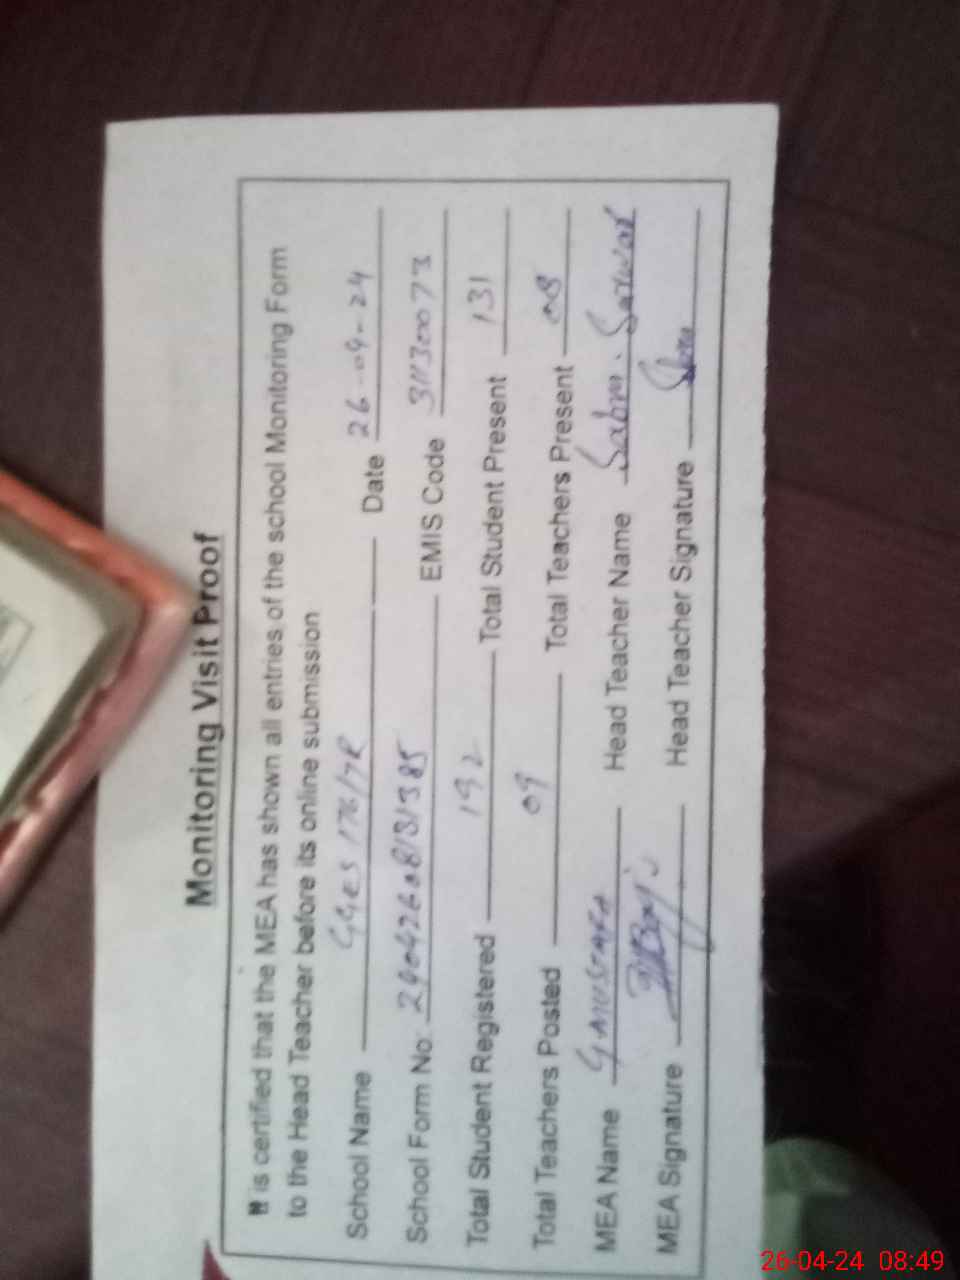 Monitoring Visit Proof
It is certified that the MEA has shown all entries of the school Monitoring Form
to the Head Teacher before its online submission
School Name GGES 176/7R Date 26-04-24
School Form No: 24042608131385 EMIS Code 31130073
Total Student Registered 192 Total Student Present 131
Total Teachers Posted 09 Total Teachers Present 08
MEA Name G MUSTAFA Head Teacher Name Sarwar
MEA Signature Head Teacher Signature
26-04-24 08:49